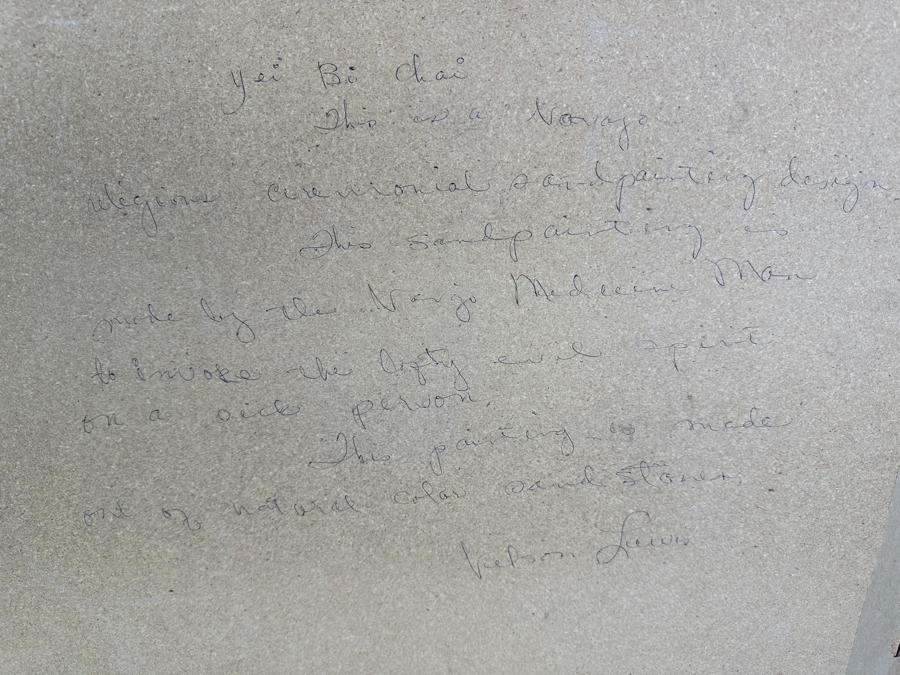 Yei Bi Chai
This is a Navajo
religious ceremonial sandpainting design
This sandpainting is
made by the Navajo Medicine Man
to invoke the lofty evil spirit
on a sick person.
This painting is made
out of natural color sandstones.
Nelson Lewis